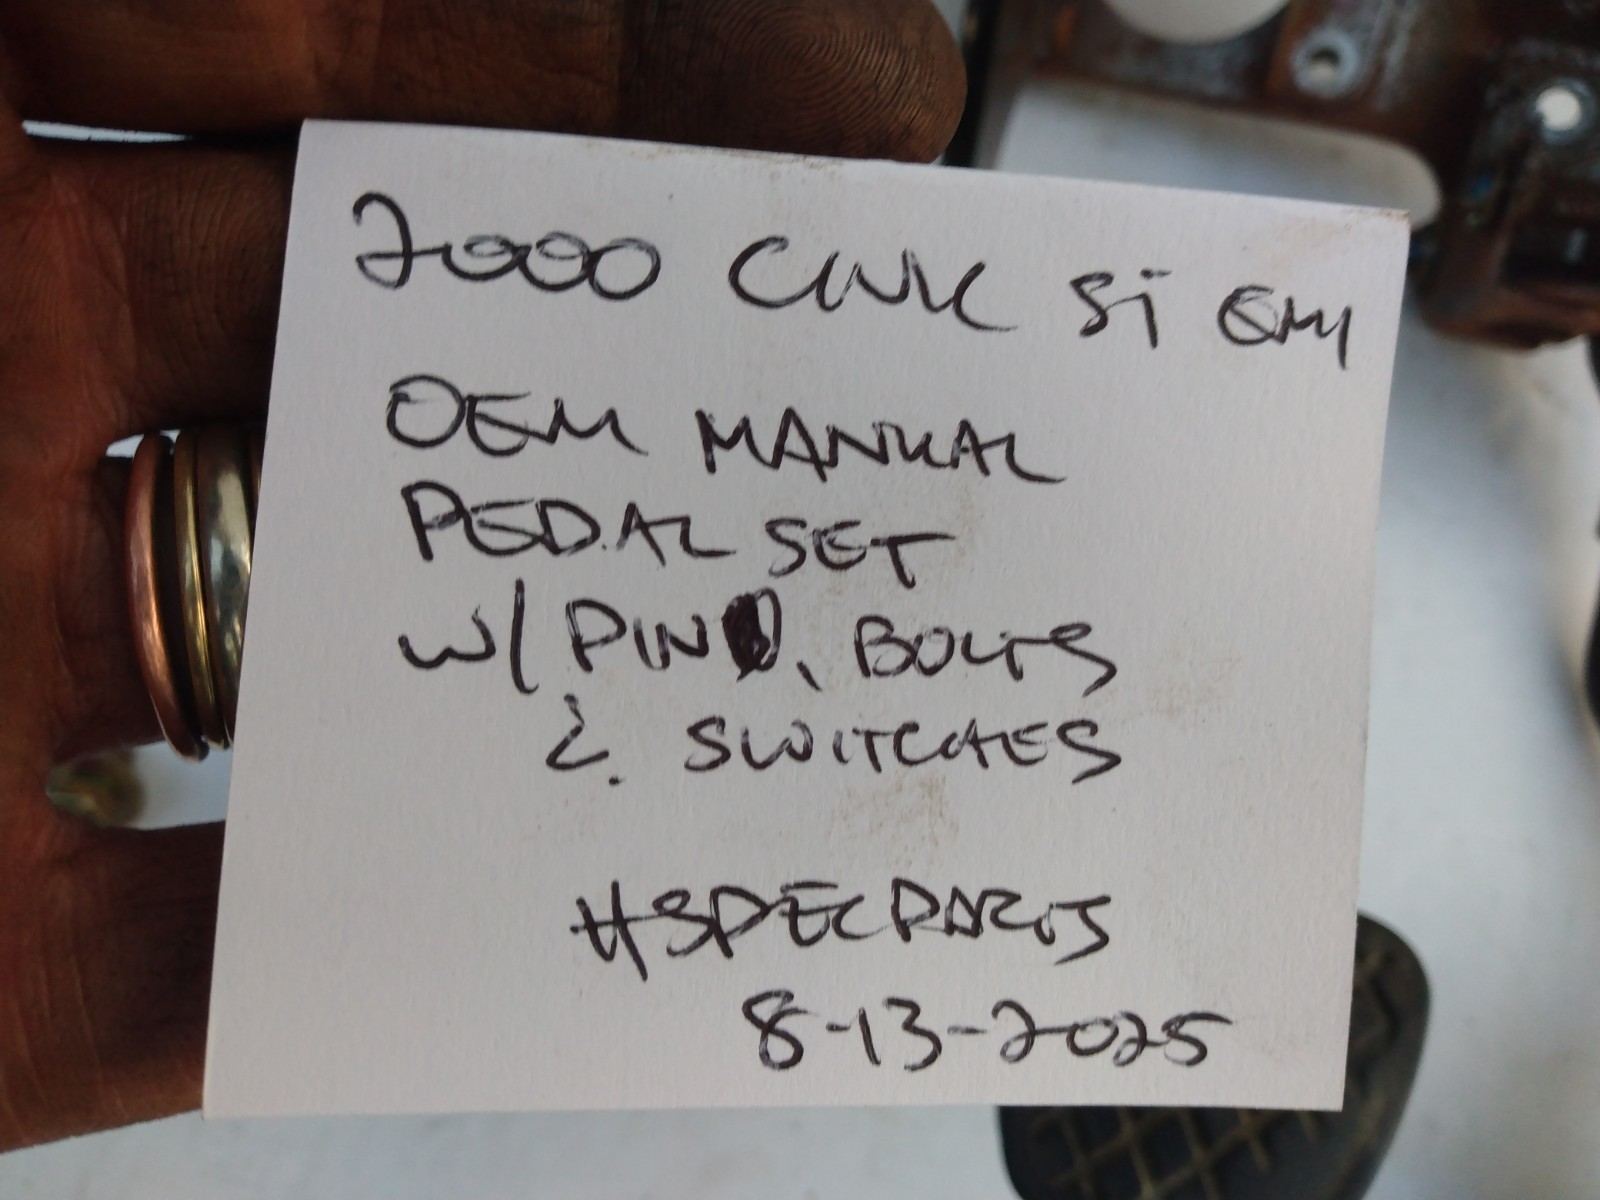 2000 CIVIC Si EM1
OEM MANUAL
PEDAL SET
W/ PIN, BOLTS
& SWITCHES
#SPECPARTS
8-13-2025